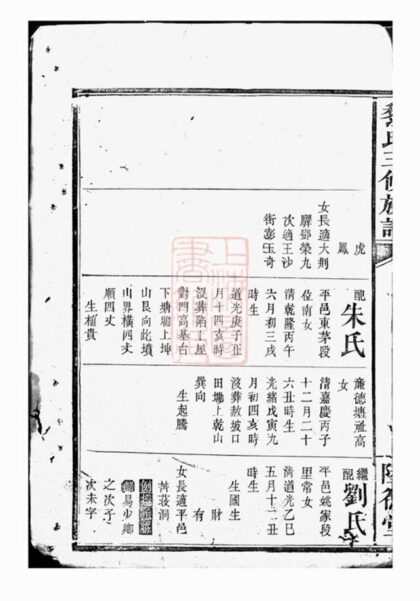 氏三修族譜
虎
鳳
女長適大荆
驛鄧榮九
次適王沙
街彭玉奇
配朱氏
平邑東茅段
位南女
清乾隆丙午
六月初三戌
時生
道光庚子正
月十四亥時
沒葬陷上屋
對門高基台
下塘上坤
山艮向此墳
山界橫四丈
順四丈
生植貴
廉德塘祉高
女
清嘉慶丙子
十二月二十
六丑時生
光緒戊寅九
月初四亥時
沒葬赦坡口
田塝上乾山
巽向
生起騰
繼配劉氏
平邑姚家段
里常女
清道光乙巳
五月十二丑
時生
生國生
財
有
女長適平邑
洞
易少鄉
之次子
次未字